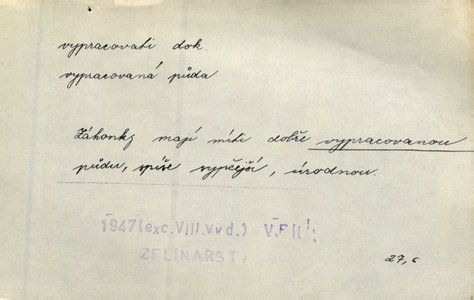 vypracovati dok.
vypracovaná půda
Záhonky mají míti dobře vypracovanou
půdu, spíše sypčejší, úrodnou.
1947 (exc. VIII. vvd.) V.
ZELINAŘST.
27, 6